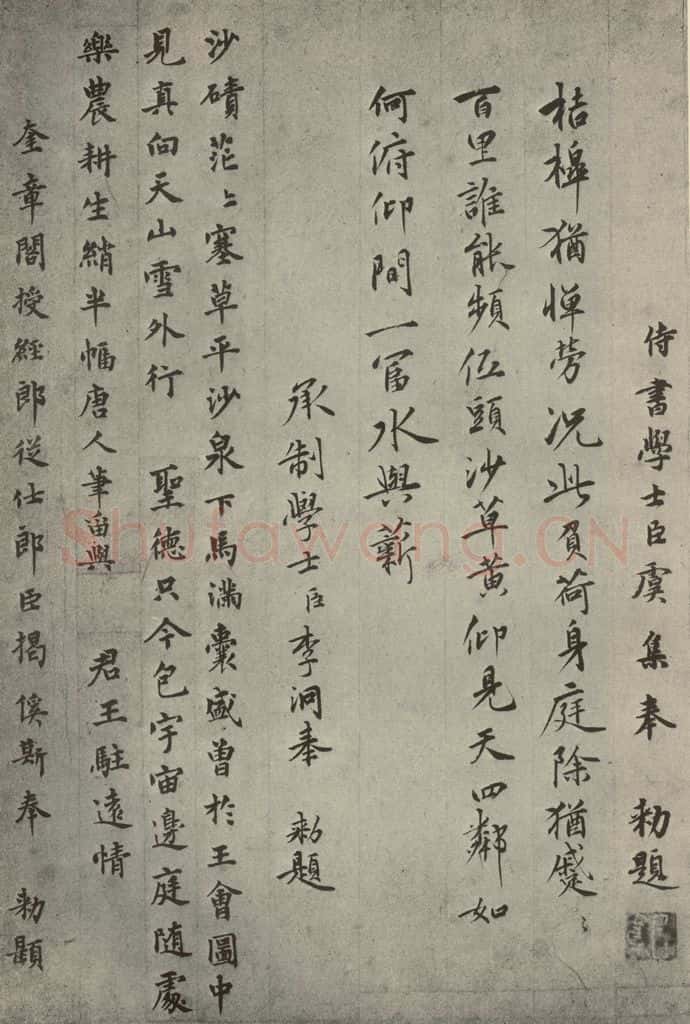 侍書學士臣虞集奉 勑題
桔槔猶憚勞況此負荷身庭除猶蹙〻
百里誰能頻低頭沙草黃仰見天四鄰如
何俯仰間一富水與薪
承制學士臣李泂奉 勑題
沙磧茫〻塞草平沙泉下馬滿囊盛曾於王會圖中
見真向天山雪外行 聖德只今包宇宙邊庭隨處
樂農耕生綃半幅唐人筆留與 君王駐遠情
奎章閣授經郎從仕郎臣揭傒斯奉 勑題
Shufawang.CN